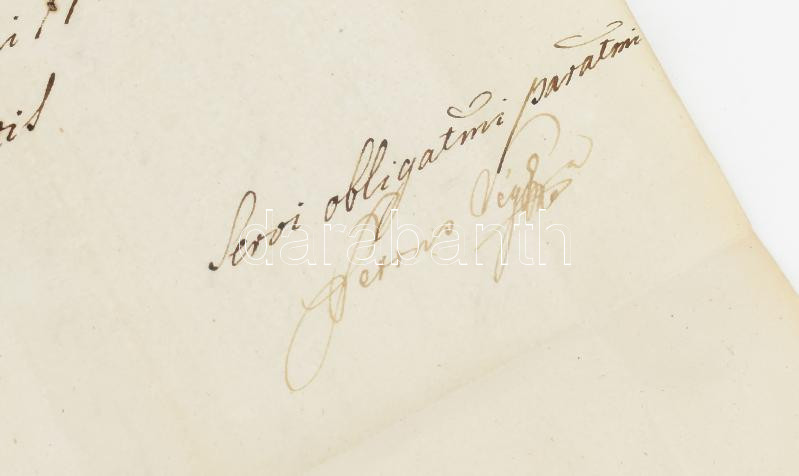 Servi obligatmi paratmi
Petrus Végh
darabanth